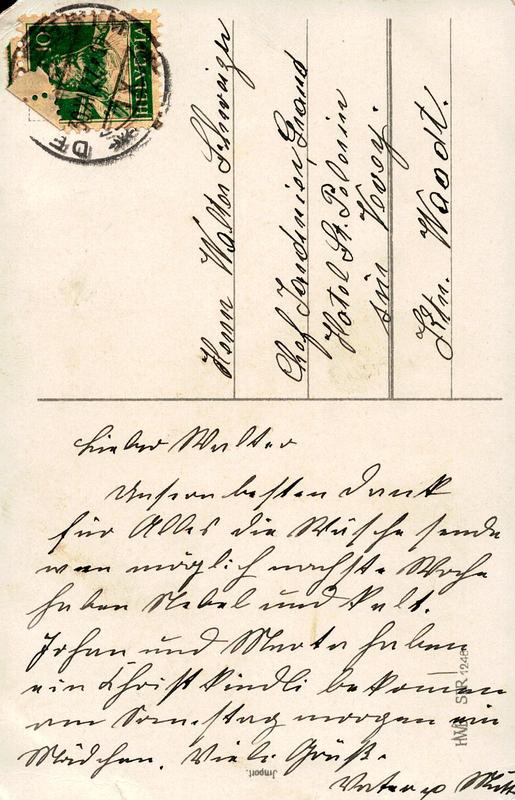 10
HELVETIA
Herrn Walter Schweizer
Chef Jardinier Grand
Hotel St. Pelerin
sur Vevey.
Ktn. Waadt.
Lieber Walter
Unsern besten Dank
für Alles die Wäsche sende
wen möglich nachste Woche
haben Nebel und kalt.
Johan und Marta haben
ein Christkindli bekommen
am Samstag morgen ein
Mädchen. Viele Grüße.
Vater u Mutt
HWB SER 1248
Import.